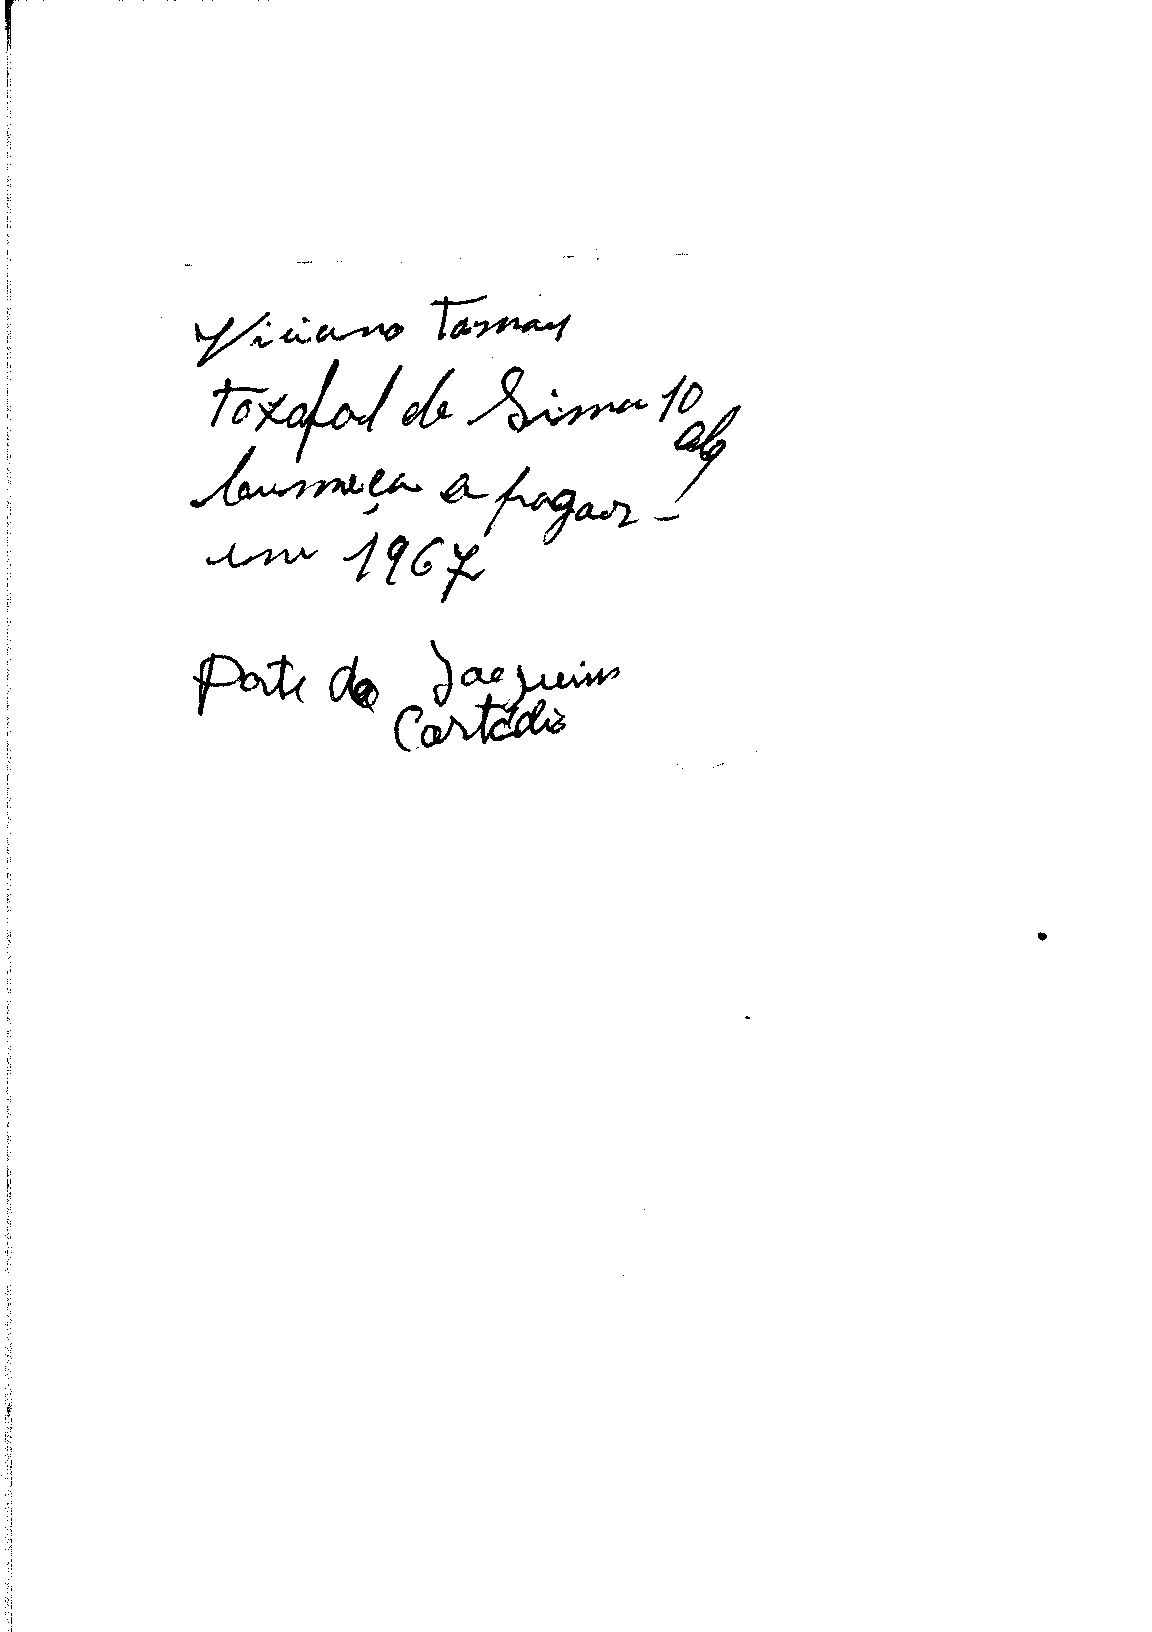 Viciano Tamay
Toxafod de Sima 10
alq
Cumeça a pagar -
em 1967
Parte do Jacquim
Custódio